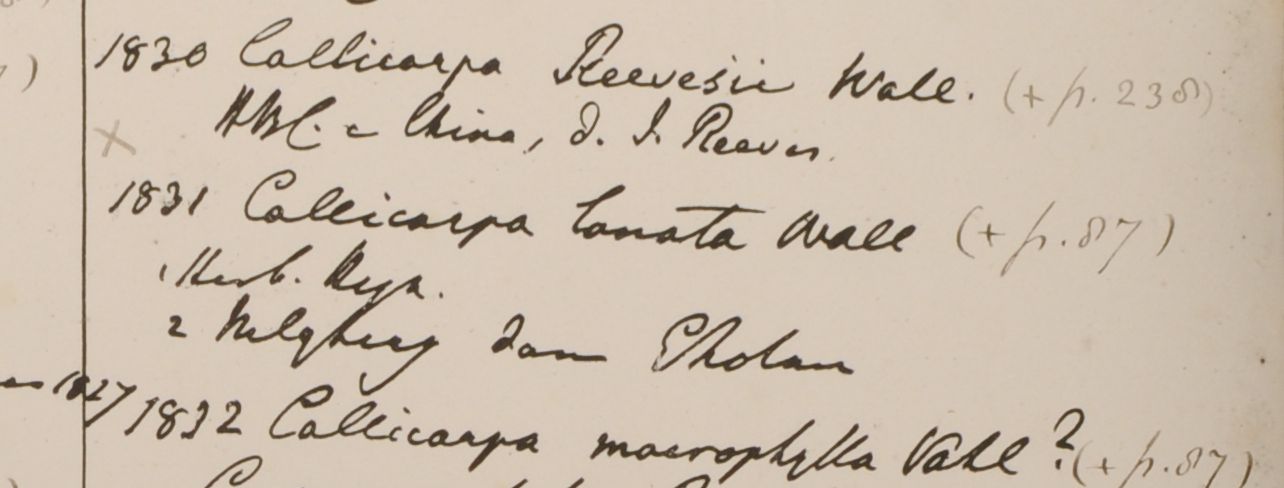 1830 Callicarpa Reevesii Wall. (+ p. 238)
HBC. e China, d. J. Reeves.
1831 Callicarpa lanata Wall (+ p. 87)
1 Herb. Heyn.
2 Nilgherry dom
1832 Callicarpa macrophylla Vahl? (+ p. 87)